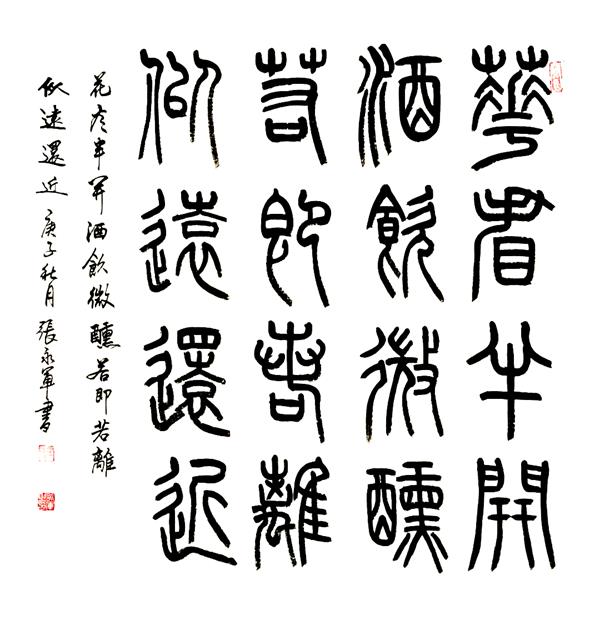 華看半開
酒飲微醺
若即若離
似遠還近
花看半開酒飲微醺若即若離
似遠還近庚子秋月張永軍書